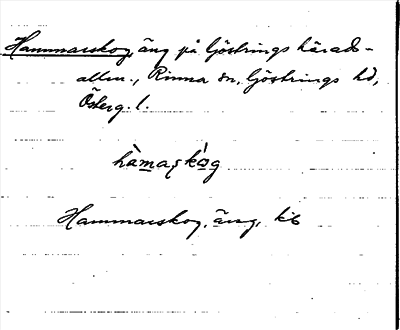 Hammarskog, äng på Göstrings härads-
allm., Rinna sn, Göstrings hd,
Österg. l.
hàmaskóg
Hammarskog, äng, kb